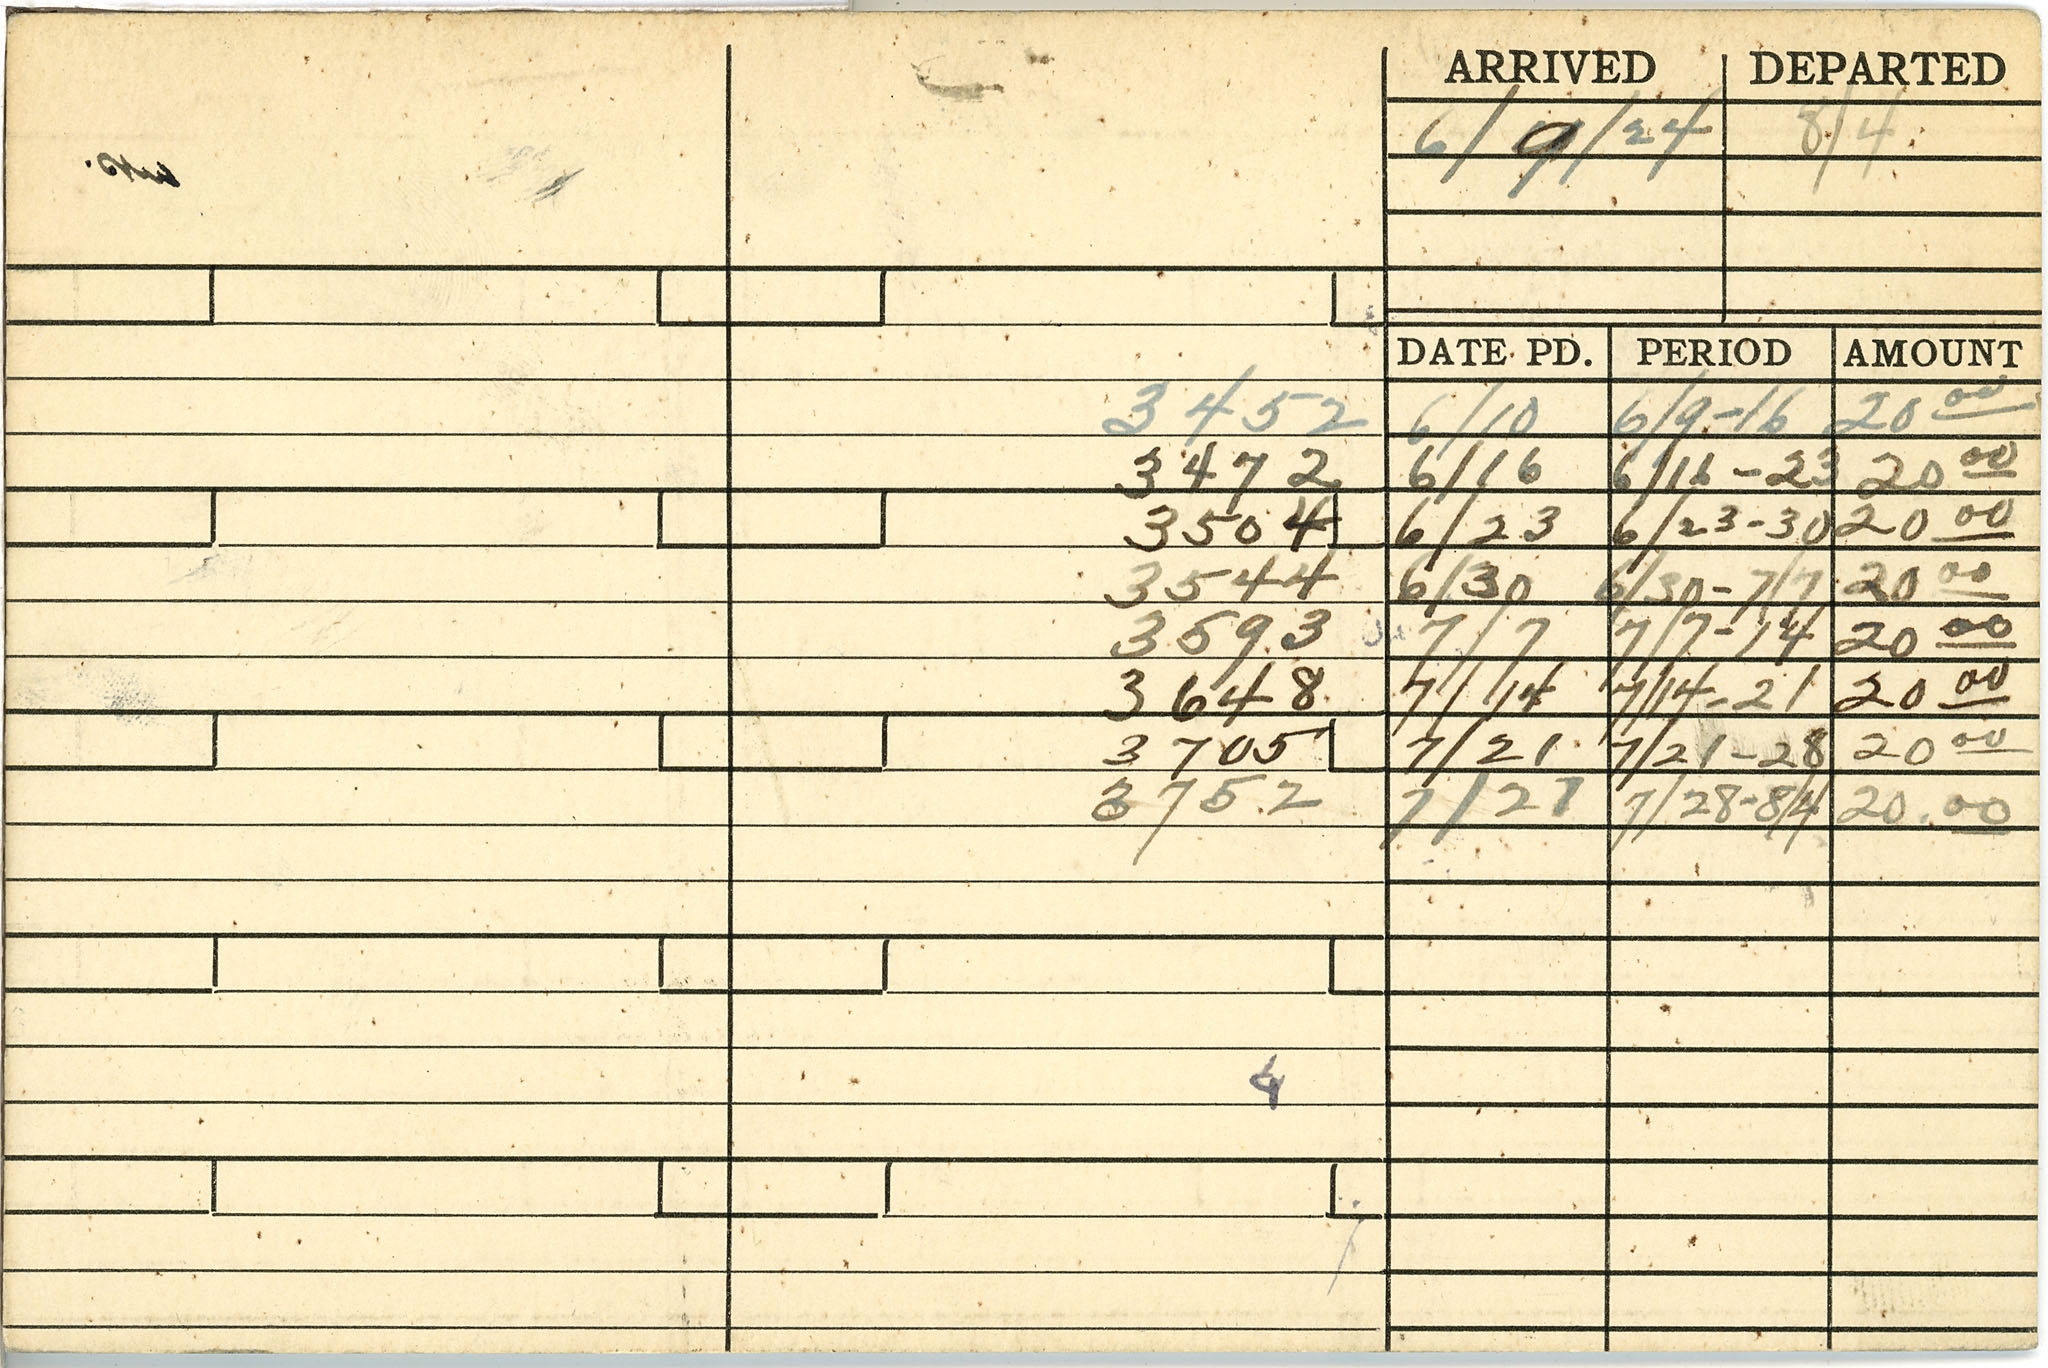 ARRIVED DEPARTED
6/9/24 8/4
DATE PD. PERIOD AMOUNT
3452 6/10 6/9-16 20 00
3472 6/16 6/16-23 20 00
3504 6/23 6/23-30 20 00
3544 6/30 6/30-7/7 20 00
3593 7/7 7/7-14 20 00
3648 7/14 7/14-21 20 00
3705 7/21 7/21-28 20 00
3752 7/27 7/28-8/4 20.00
4